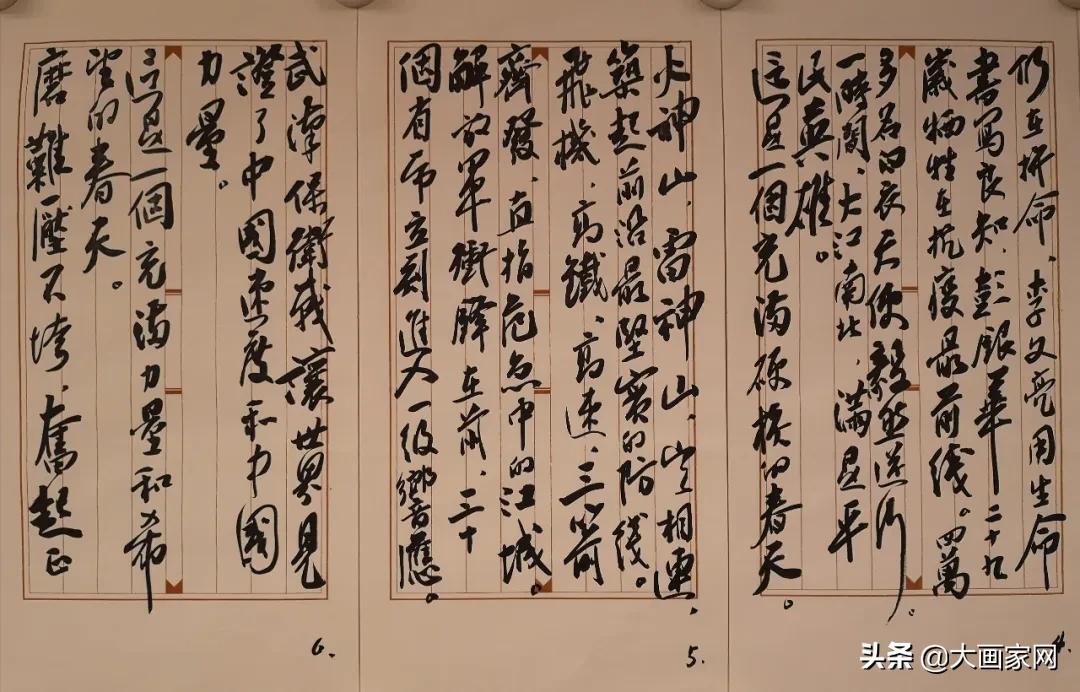 仍在拼命、李文亮用生命
書寫良知、彭银華二十九
歲牺牲在抗疫最前线。四萬
多名白衣天使毅然逆行。
一時間、大江南北、滿是平
民英雄。
这是一個充满硬核的春天。
4.
火神山、雷神山、山山相連、
築起前沿最堅實的防线。
飛機、高鐵、高速、三箭
齊發、直指危急中的江城。
解放軍衝鋒在前、三十
個省市立刻進入一级響應。
5.
武漢保衛战讓世界見
證了中國速度和中國
力量。
这是一個充满力量和希
望的春天。
磨難壓不垮、奮起正
6.
头条 @大画家网